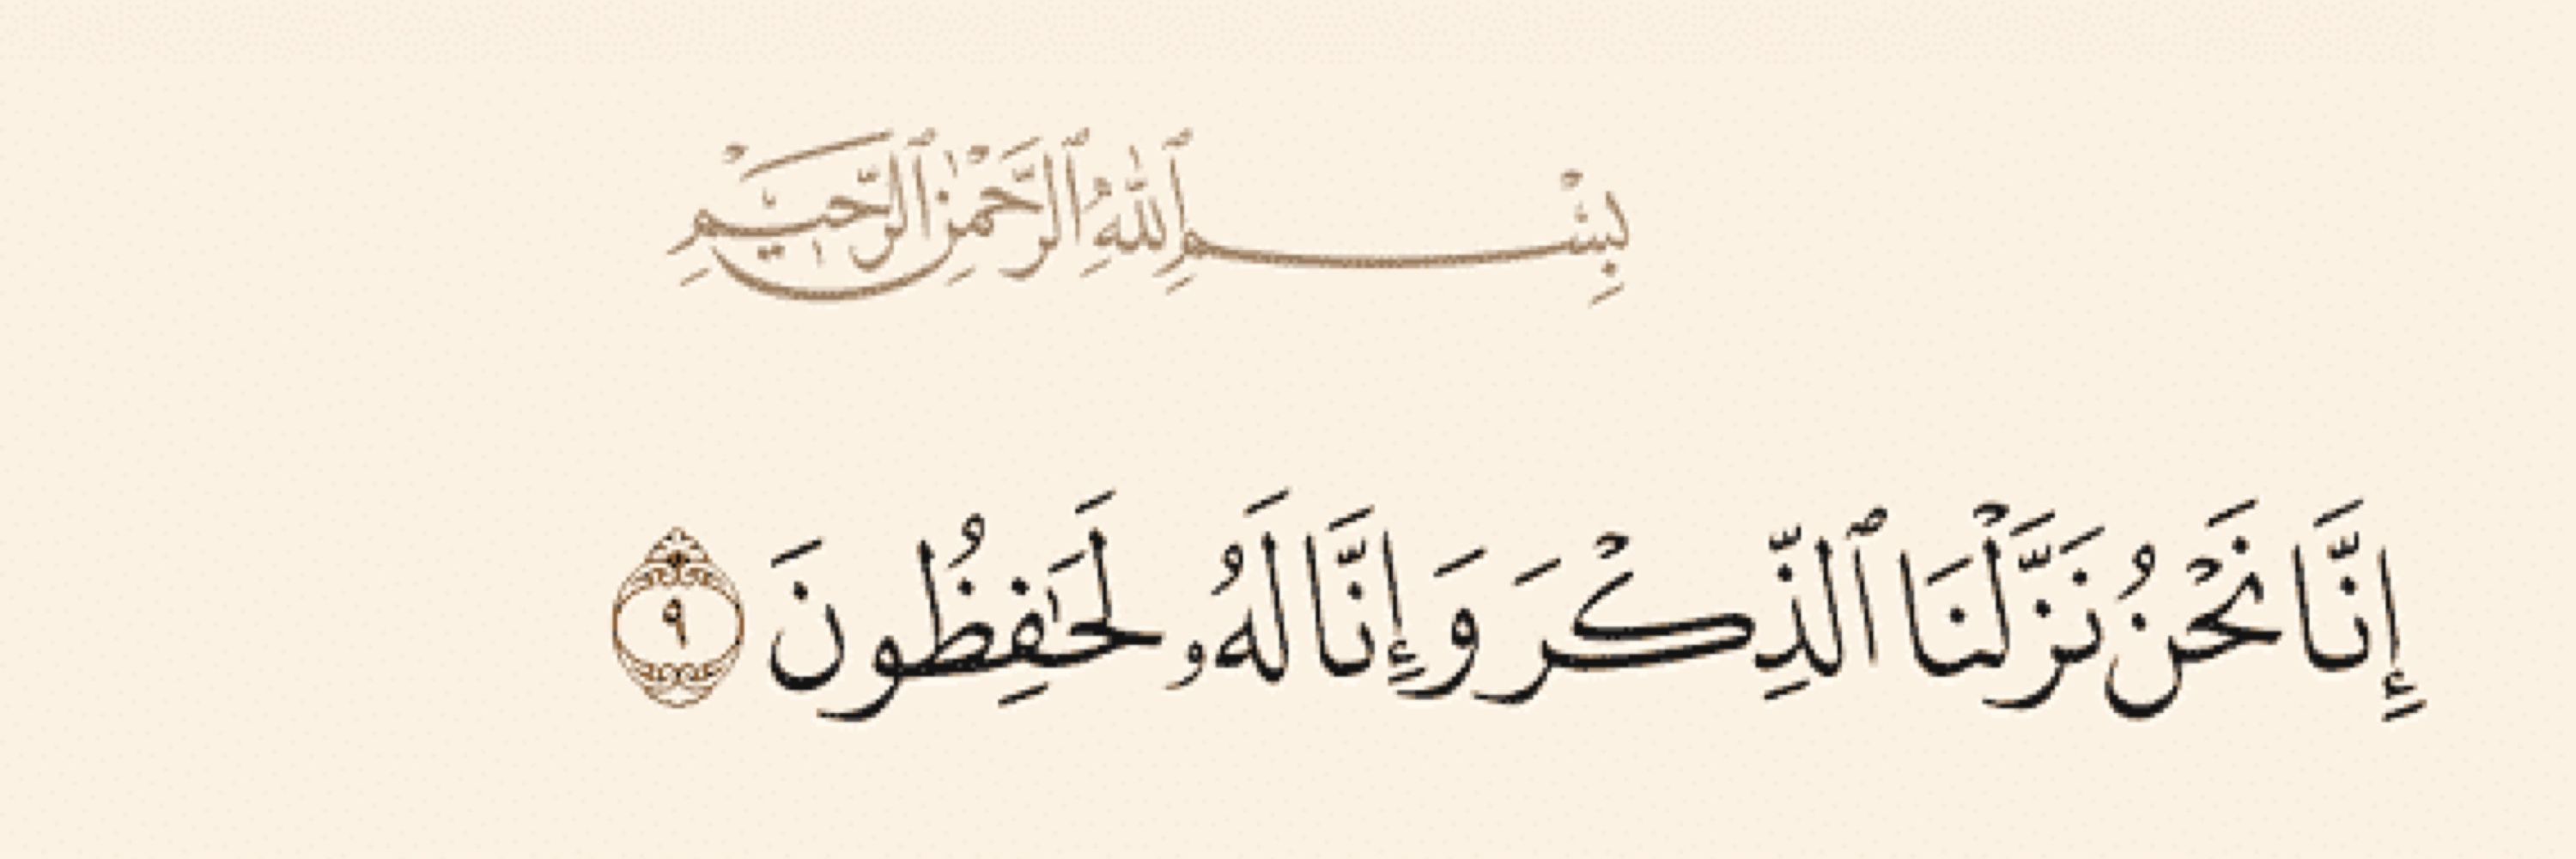 بِسْمِ ٱللَّهِ ٱلرَّحْمَٰنِ ٱلرَّحِيمِ
إِنَّا نَحْنُ نَزَّلْنَا ٱلذِّكْرَ وَإِنَّا لَهُۥ لَحَٰفِظُونَ ٩